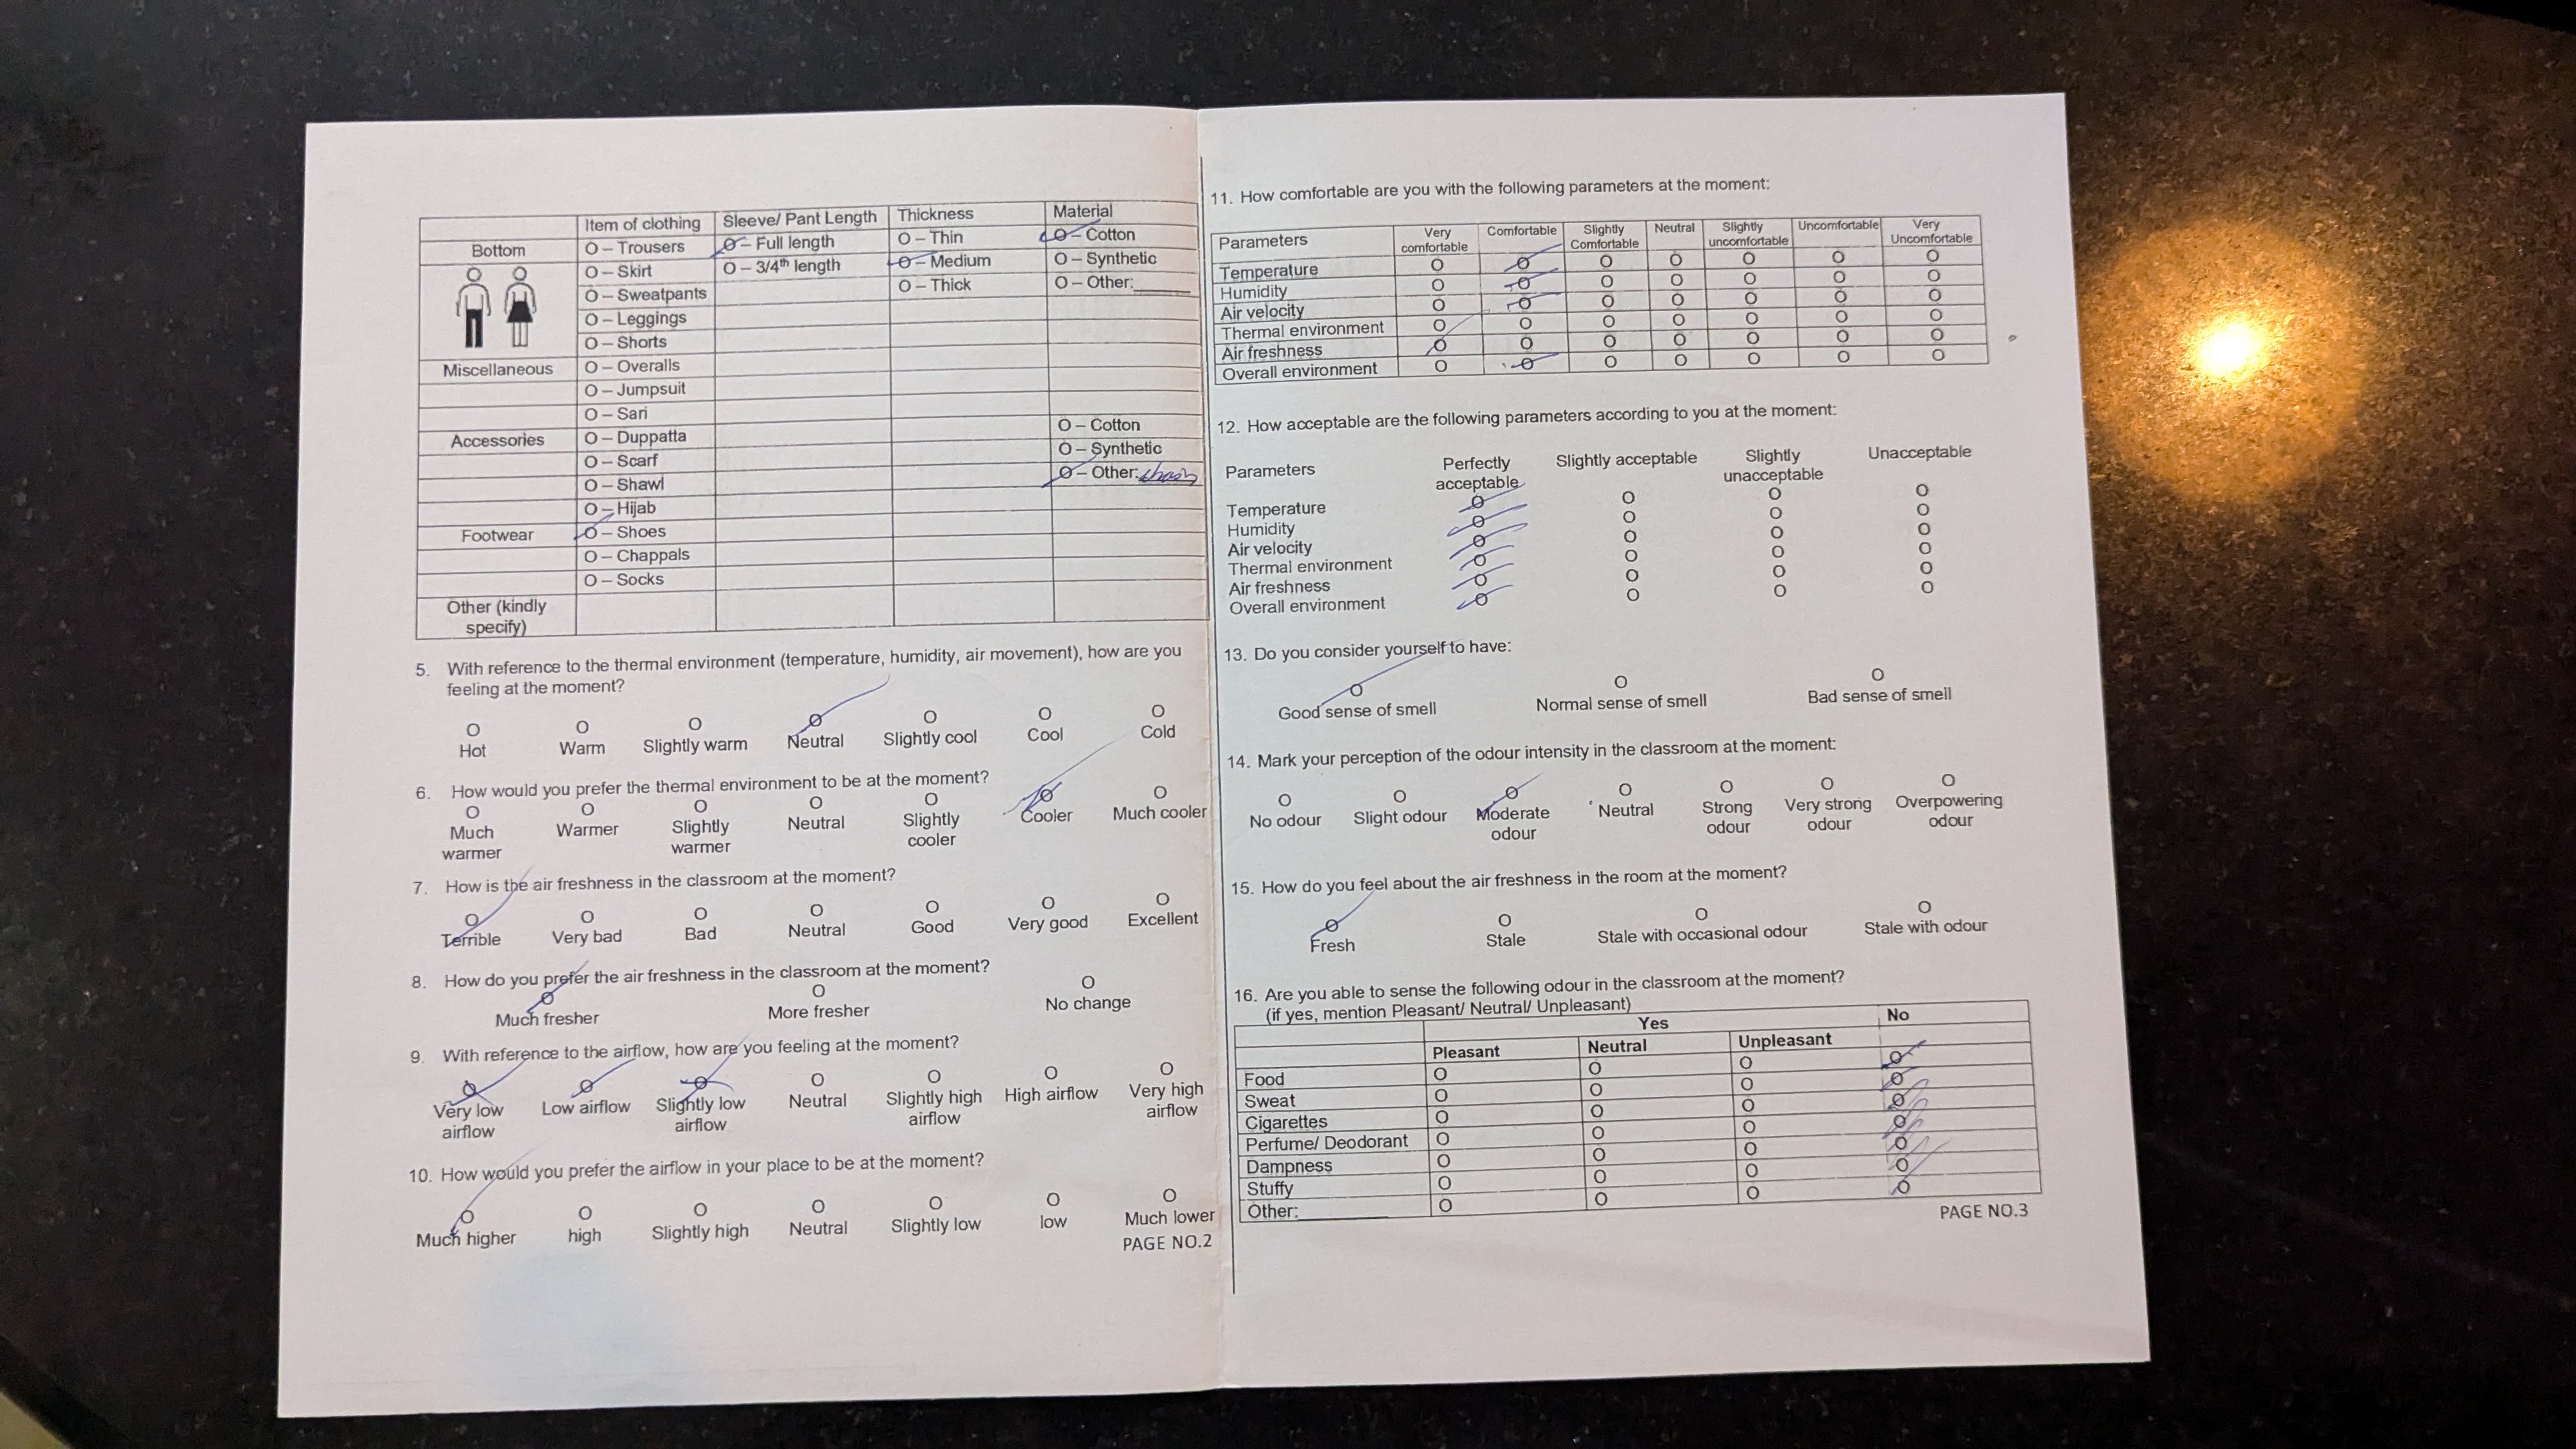 Item of clothing Sleeve/ Pant Length Thickness Material
Bottom O – Trousers O – Full length O – Thin O – Cotton
O – Skirt O – 3/4th length O – Medium O – Synthetic
O – Sweatpants O – Thick O – Other:______
O – Leggings
O – Shorts
Miscellaneous O – Overalls
O – Jumpsuit
O – Sari
Accessories O – Duppatta O – Cotton
O – Scarf O – Synthetic
O – Shawl O – Other:
O – Hijab
Footwear O – Shoes
O – Chappals
O – Socks
Other (kindly
specify)
5. With reference to the thermal environment (temperature, humidity, air movement), how are you
feeling at the moment?
O O O O O O O
Hot Warm Slightly warm Neutral Slightly cool Cool Cold
6. How would you prefer the thermal environment to be at the moment?
O O O O O O O
Much Warmer Slightly Neutral Slightly Cooler Much cooler
warmer warmer cooler
7. How is the air freshness in the classroom at the moment?
O O O O O O O
Terrible Very bad Bad Neutral Good Very good Excellent
8. How do you prefer the air freshness in the classroom at the moment?
O O O
Much fresher More fresher No change
9. With reference to the airflow, how are you feeling at the moment?
O O O O O O O
Very low Low airflow Slightly low Neutral Slightly high High airflow Very high
airflow airflow airflow airflow
10. How would you prefer the airflow in your place to be at the moment?
O O O O O O O
Much higher high Slightly high Neutral Slightly low low Much lower
PAGE NO.2
11. How comfortable are you with the following parameters at the moment:
Parameters Very Comfortable Slightly Neutral Slightly Uncomfortable Very
comfortable Comfortable uncomfortable Uncomfortable
Temperature O O O O O O O
Humidity O O O O O O O
Air velocity O O O O O O O
Thermal environment O O O O O O O
Air freshness O O O O O O O
Overall environment O O O O O O O
12. How acceptable are the following parameters according to you at the moment:
Parameters Perfectly Slightly acceptable Slightly Unacceptable
acceptable unacceptable
Temperature O O O O
Humidity O O O O
Air velocity O O O O
Thermal environment O O O O
Air freshness O O O O
Overall environment O O O O
13. Do you consider yourself to have:
O O O
Good sense of smell Normal sense of smell Bad sense of smell
14. Mark your perception of the odour intensity in the classroom at the moment:
O O O O O O O
No odour Slight odour Moderate Neutral Strong Very strong Overpowering
odour odour odour odour
15. How do you feel about the air freshness in the room at the moment?
O O O O
Fresh Stale Stale with occasional odour Stale with odour
16. Are you able to sense the following odour in the classroom at the moment?
(if yes, mention Pleasant/ Neutral/ Unpleasant)
Yes No
Pleasant Neutral Unpleasant
Food O O O O
Sweat O O O O
Cigarettes O O O O
Perfume/ Deodorant O O O O
Dampness O O O O
Stuffy O O O O
Other:__________ O O O O
PAGE NO.3